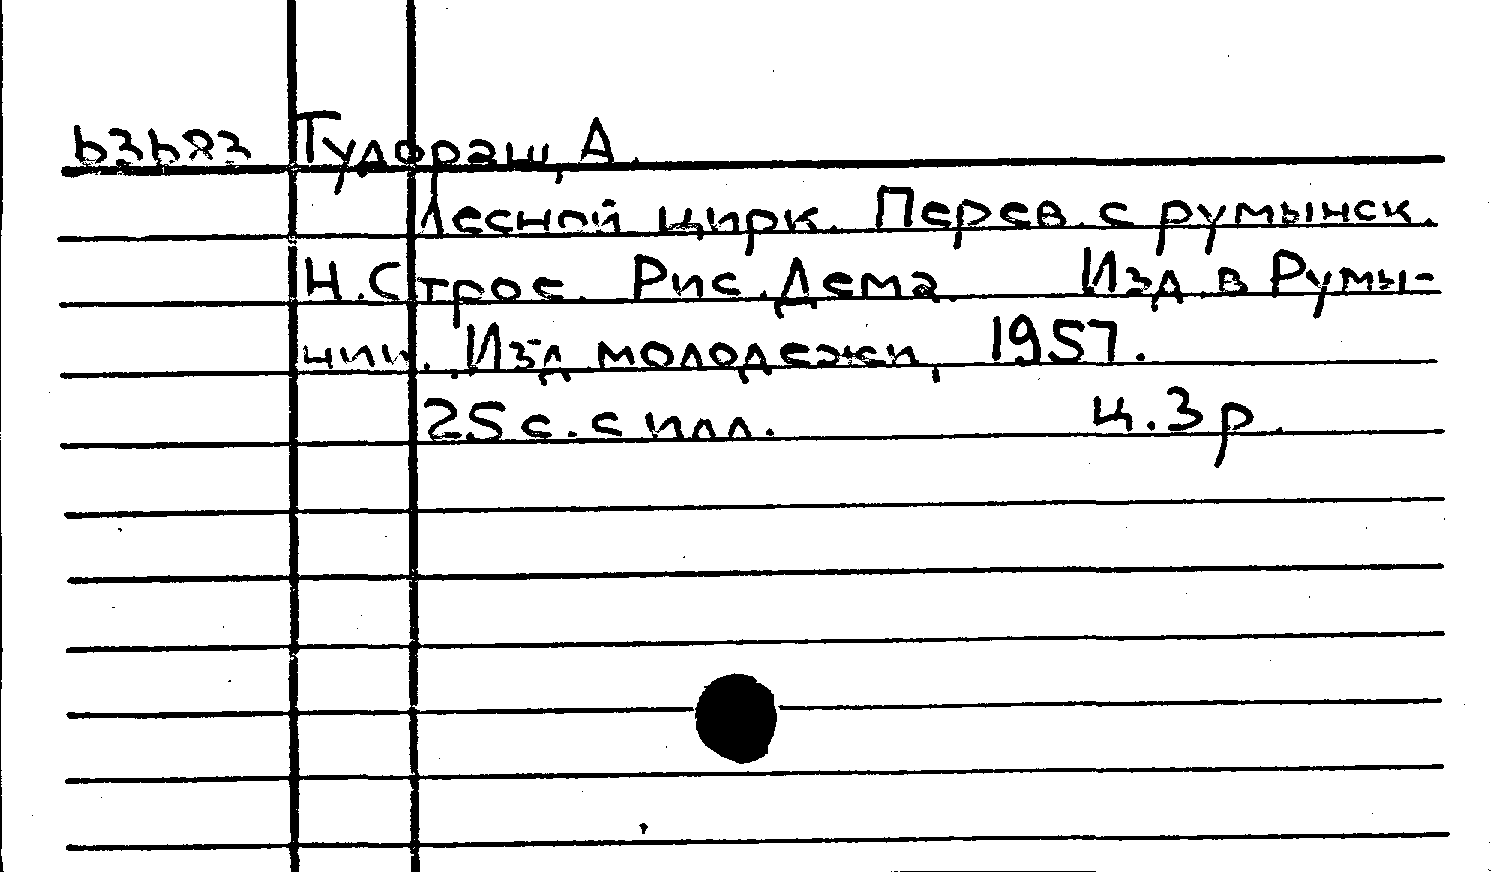 63683 Тудораш, А.
Лесной цирк. Перев. с румынск.
Н. Строе. Рис. Дема. Изд в Румы-
нии. Изд молодежи, 1957.
25 с. с илл. ц. 3 р.